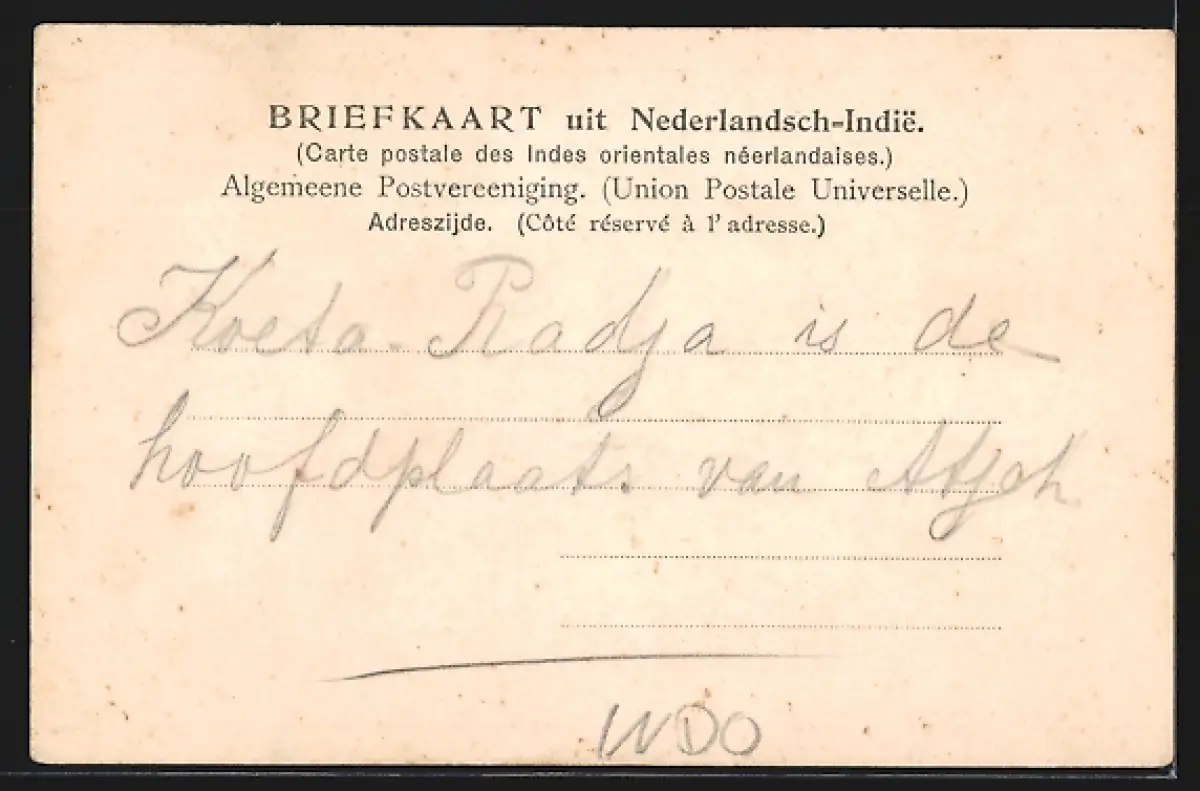 BRIEFKAART uit Nederlandsch-Indië.
(Carte postale des Indes orientales néerlandaises.)
Algemeene Postvereeniging. (Union Postale Universelle.)
Adreszijde. (Côté réservé à l'adresse.)
Koeta-Radja is de
hoofdplaats van Atjeh
WDO